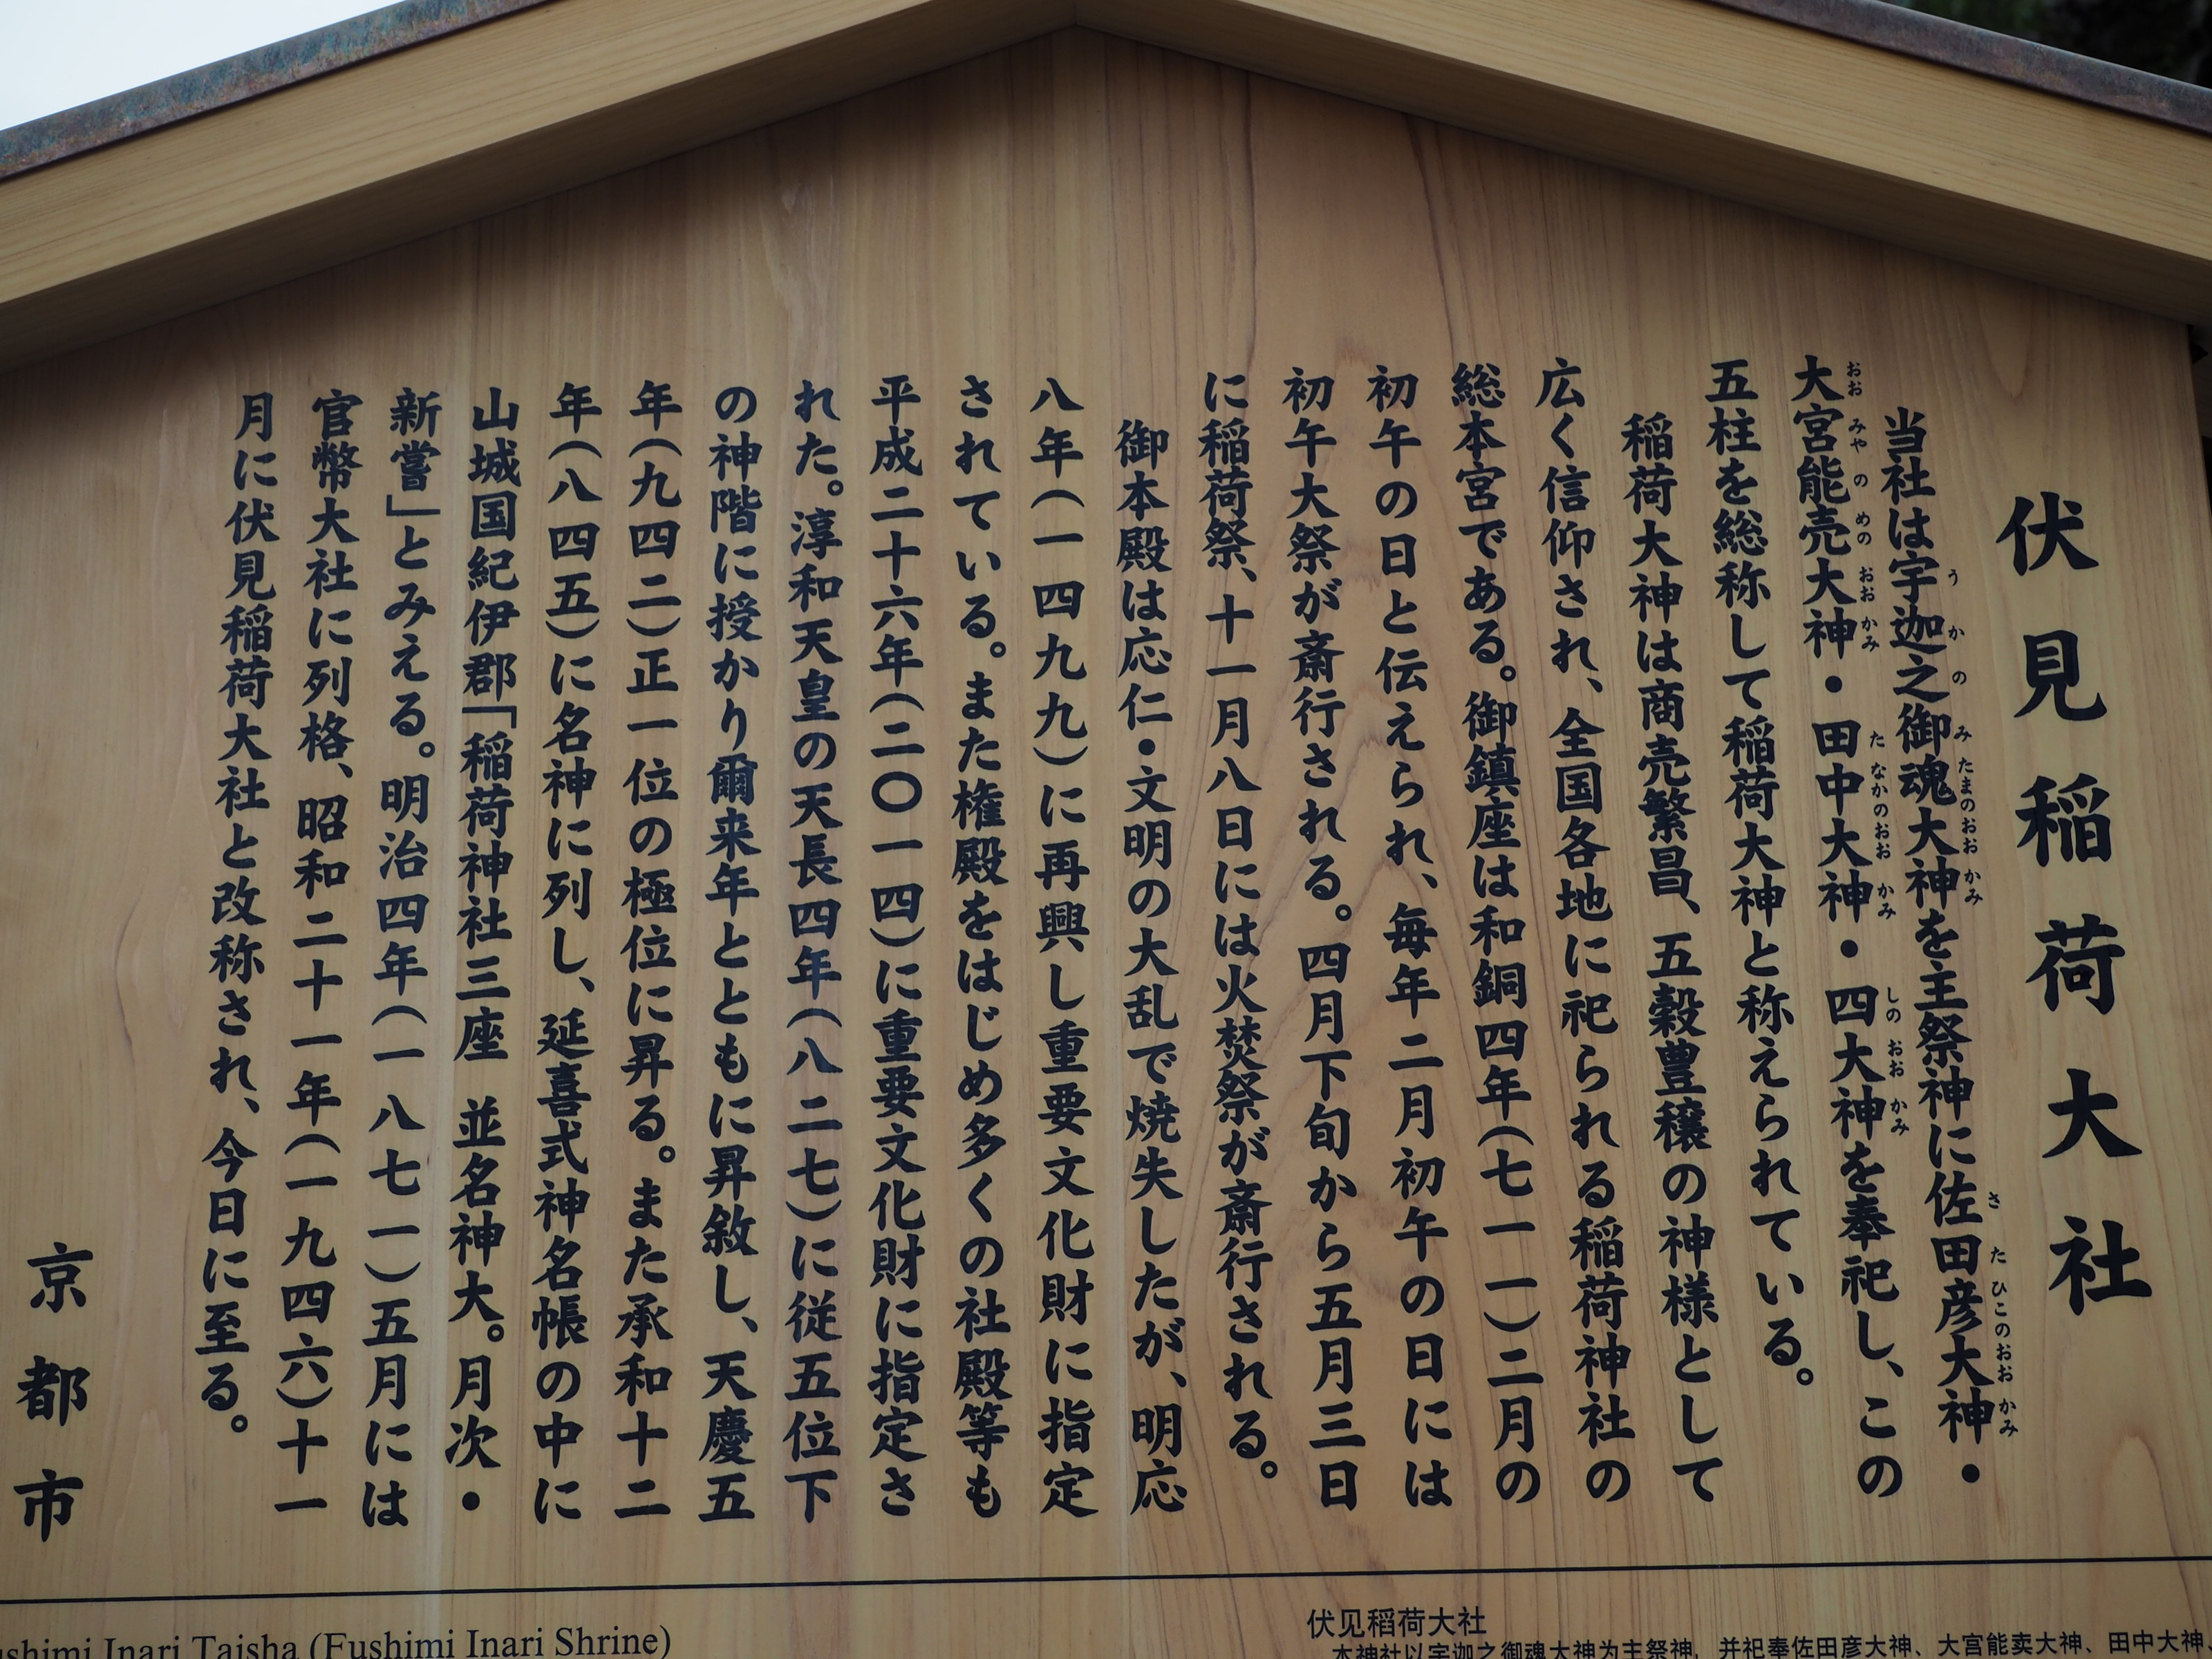 伏見稲荷大社
当社は宇迦之御魂大神を主祭神に佐田彦大神・
大宮能売大神・田中大神・四大神を奉祀し、この
五柱を総称して稲荷大神と称えられている。
稲荷大神は商売繁昌、五穀豊穣の神様として
広く信仰され、全国各地に祀られる稲荷神社の
総本宮である。御鎮座は和銅四年(七一一)二月の
初午の日と伝えられ、毎年二月初午の日には
初午大祭が斎行される。四月下旬から五月三日
に稲荷祭、十一月八日には火焚祭が斎行される。
御本殿は応仁・文明の大乱で焼失したが、明応
八年(一四九九)に再興し重要文化財に指定
されている。また権殿をはじめ多くの社殿等も
平成二十六年(二〇一四)に重要文化財に指定さ
れた。淳和天皇の天長四年(八二七)に従五位下
の神階に授かり爾来年とともに昇敘し、天慶五
年(九四二)正一位の極位に昇る。また承和十二
年(八四五)に名神に列し、延喜式神名帳の中に
山城国紀伊郡「稲荷神社三座 並名神大。月次・
新嘗」とみえる。明治四年(一八七一)五月には
官幣大社に列格、昭和二十一年(一九四六)十一
月に伏見稲荷大社と改称され、今日に至る。
京都市
ushimi Inari Taisha (Fushimi Inari Shrine)
伏见稻荷大社
本神社以宇迦之御魂大神为主祭神，并祀奉佐田彦大神、大宫能卖大神、田中大神、